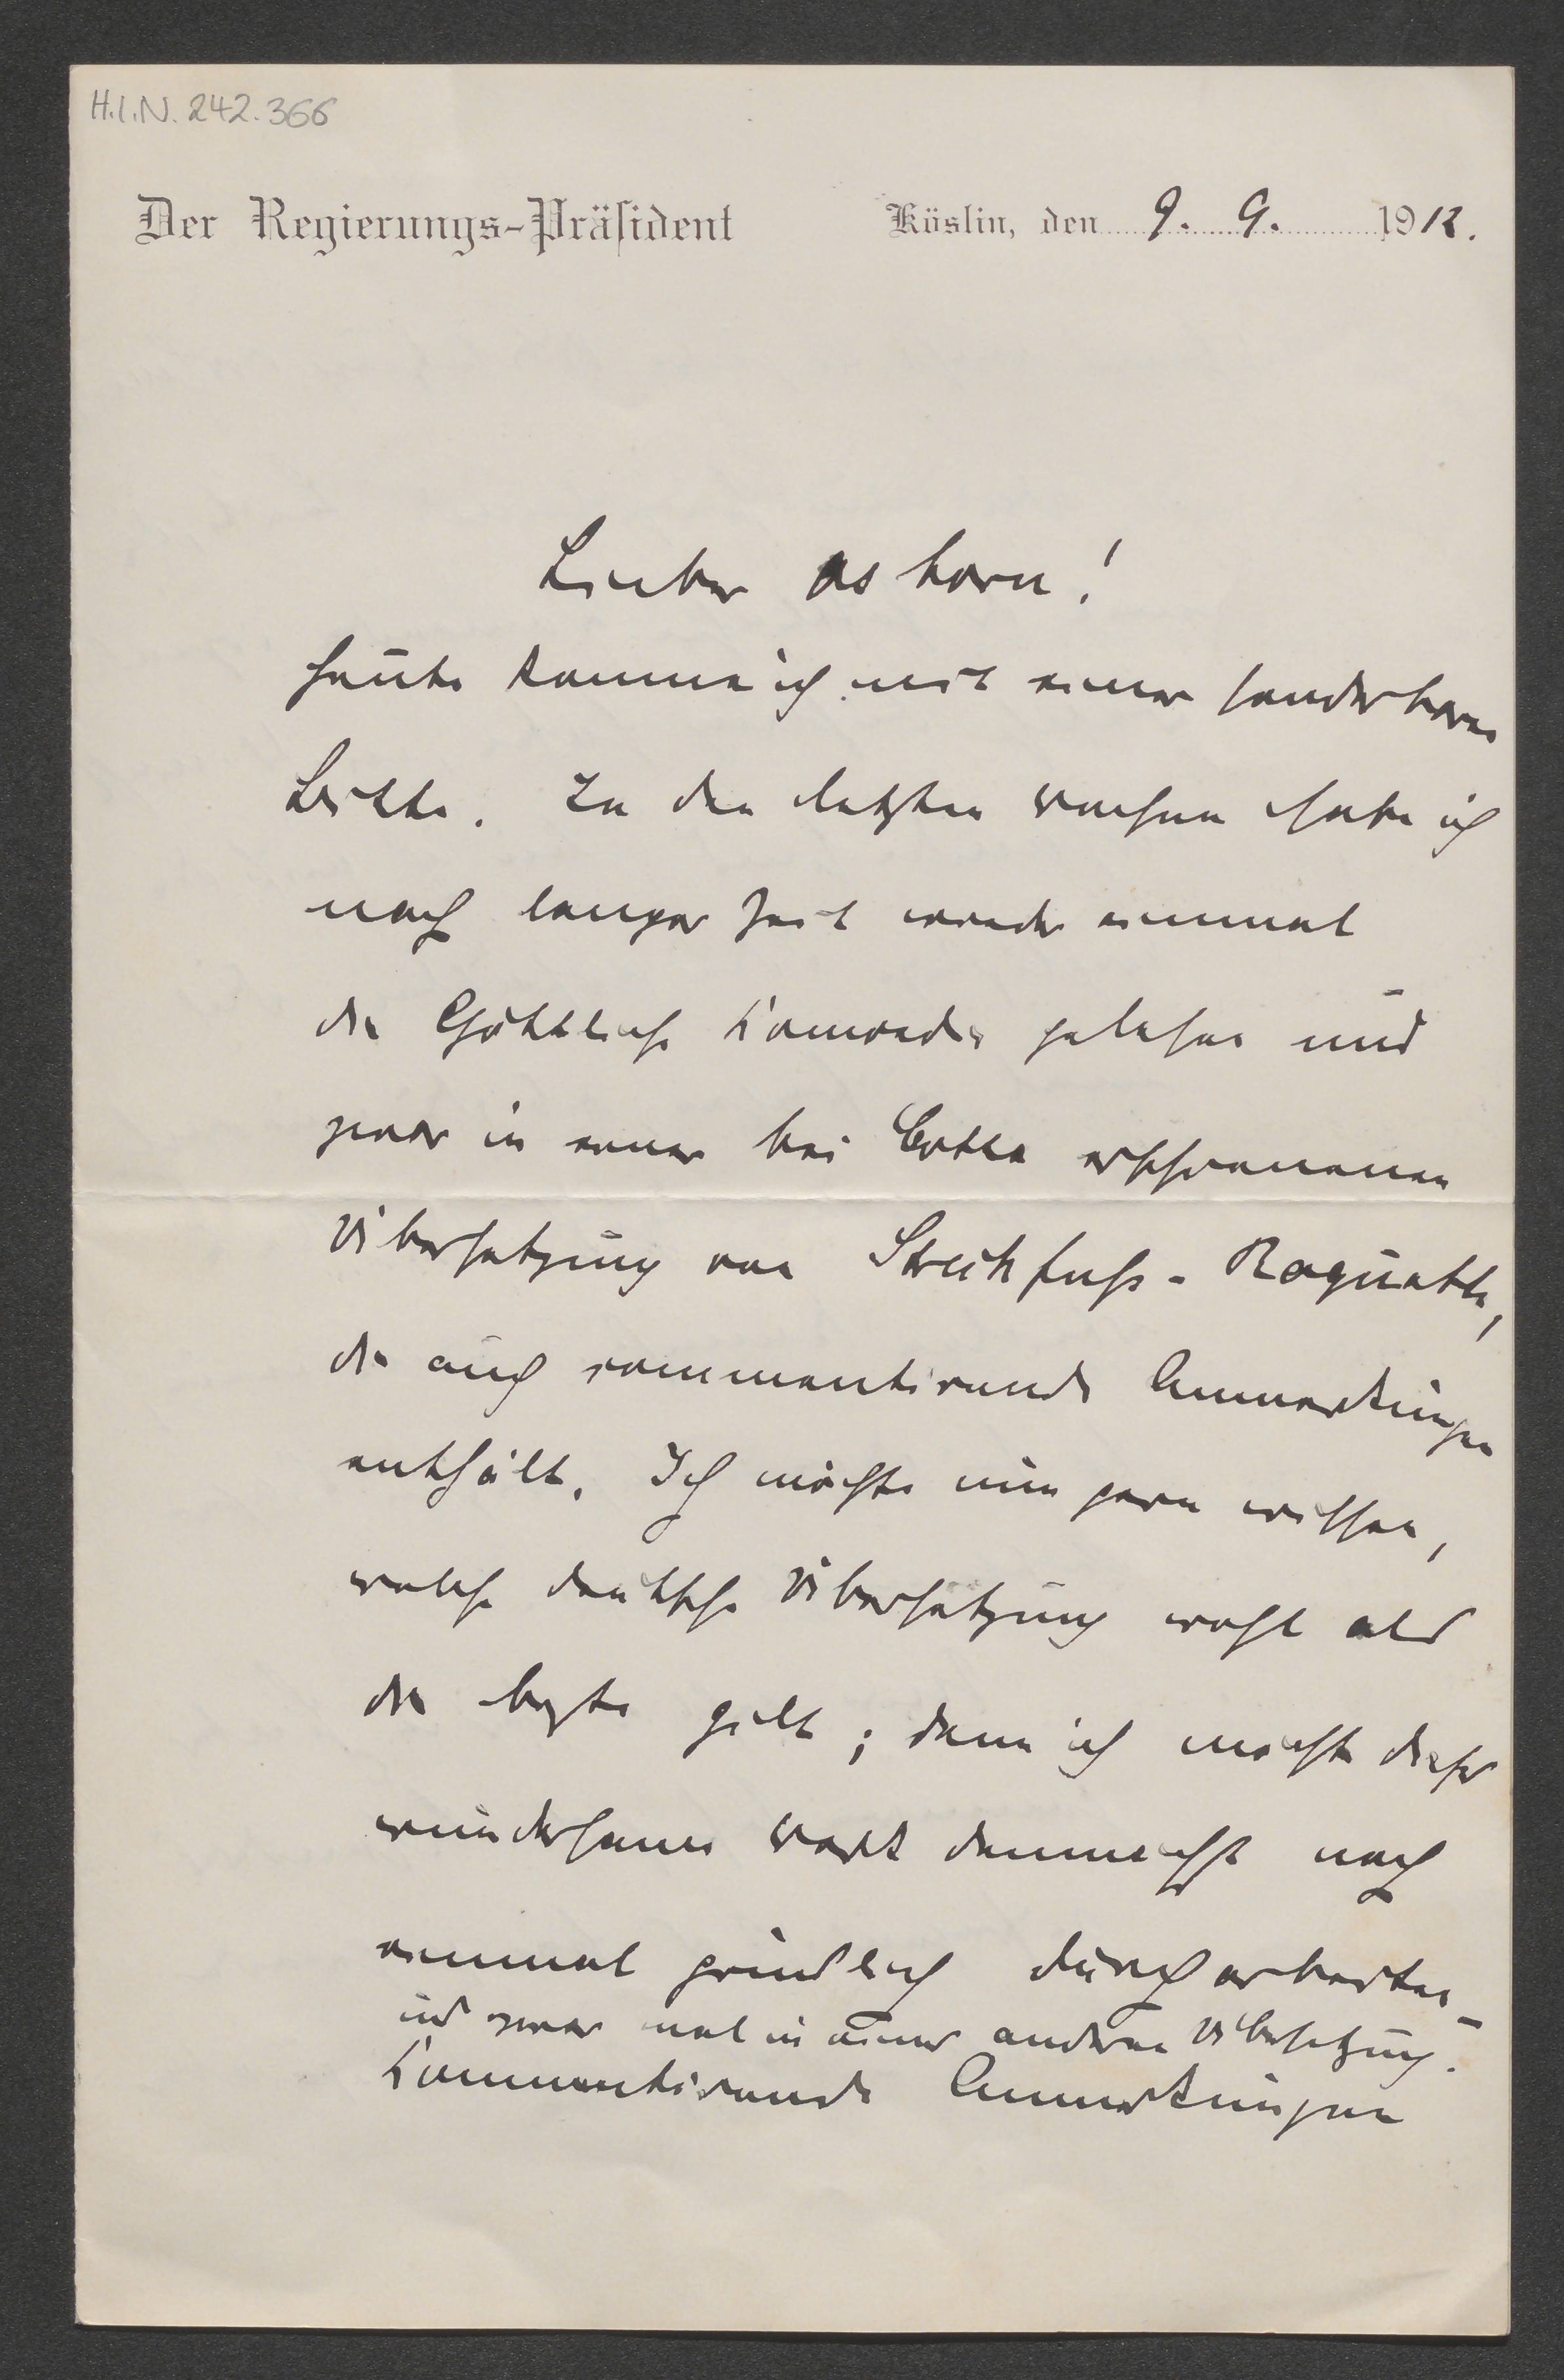 H.I.N. 242.366
Der Regierungs-Präsident Köslin, den 9. 9. 1912.
Lieber Osborn!
Heute komme ich mit einer sonderbaren
Bitte. In den letzten Wochen habe ich
nach langer Zeit wieder einmal
die Göttliche Komoedie gelesen und
zwar in einer bei Cotta erschienenen
Übersetzung von Streckfuß-Roquette,
die auch commentirende Anmerkungen
enthält. Ich möchte nun gern wissen,
welche deutsche Übersetzung wohl als
die beste gilt; denn ich möchte dieses
wundersame Werk demnächst noch
einmal gründlich durcharbeiten –
und zwar mal in einer anderen Übersetzung.
Kommentirende Anmerkungen